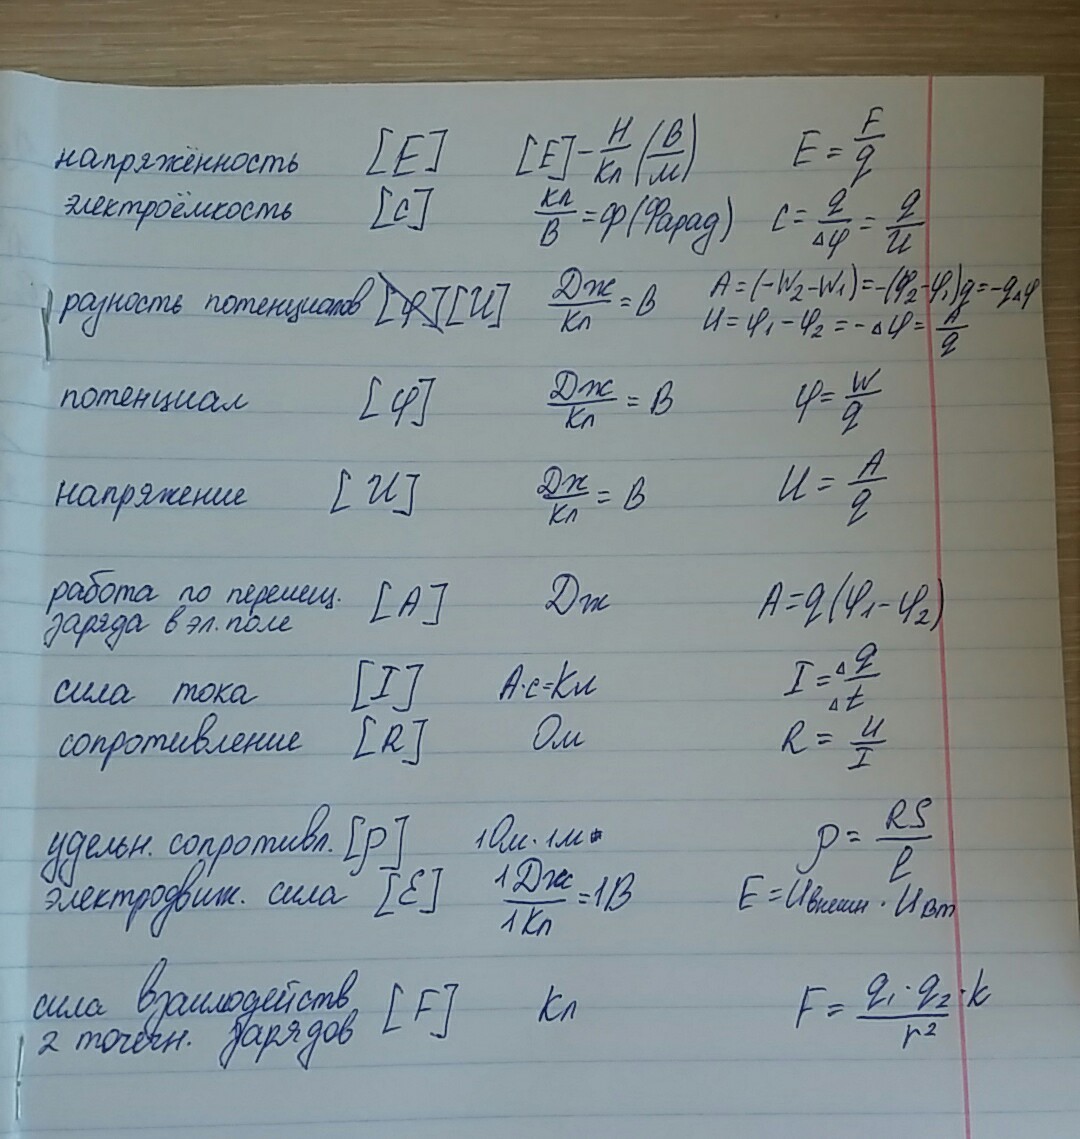 напряжённость [E] [E] - Н/Кл (В/м) E = F/q
электроёмкость [C] Кл/В = Ф (Фарад) C = q/Δφ = q/U
разность потенциалов [φ] [U] Дж/Кл = В A = (-W₂-W₁) = -(φ₂-φ₁)q = -qΔφ
U = φ₁ - φ₂ = -Δφ = A/q
потенциал [φ] Дж/Кл = В φ = W/q
напряжение [U] Дж/Кл = В U = A/q
работа по перемещ. [A] Дж A = q(φ₁ - φ₂)
заряда в эл. поле
сила тока [I] А·с=Кл I = Δq/Δt
сопротивление [R] Ом R = U/I
удельн. сопротивл. [ρ] 1Ом·1м ρ = RS/l
электродвиж. сила [Ɛ] 1Дж/1Кл = 1В E = Uвнешн · Uвт
сила взаимодейств [F] Кл F = q₁·q₂/r² · k
2 точечн. зарядов